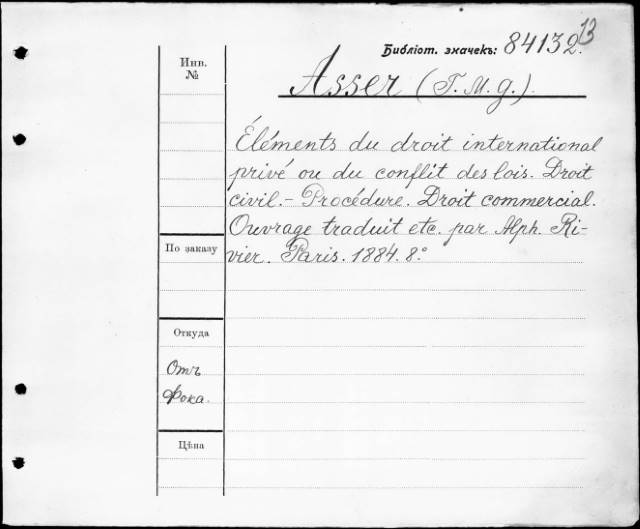 Библіот. значекъ: 84132.13
Инв.
№
Asser (T. M. g.).
Éléments du droit international
privé ou du conflit des lois. Droit
civil. - Procédure. Droit commercial.
Ouvrage traduit etc. par Alph. Ri-
vier. Paris. 1884. 8°.
По заказу
Откуда
Отъ
Фока.
Цѣна